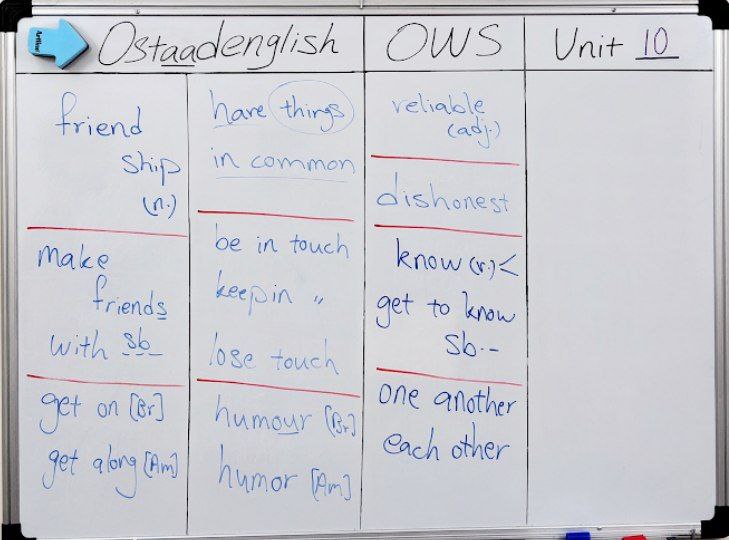 Ostaadenglish
OWS
Unit 10
friend
ship
(n.)
make
friends
with sb
get on [Br]
get along [Am]
have things
in common
be in touch
keep in 〃
lose touch
humour [Br]
humor [Am]
reliable
(adj.)
dishonest
know (v.) <
get to know
sb.-
one another
each other